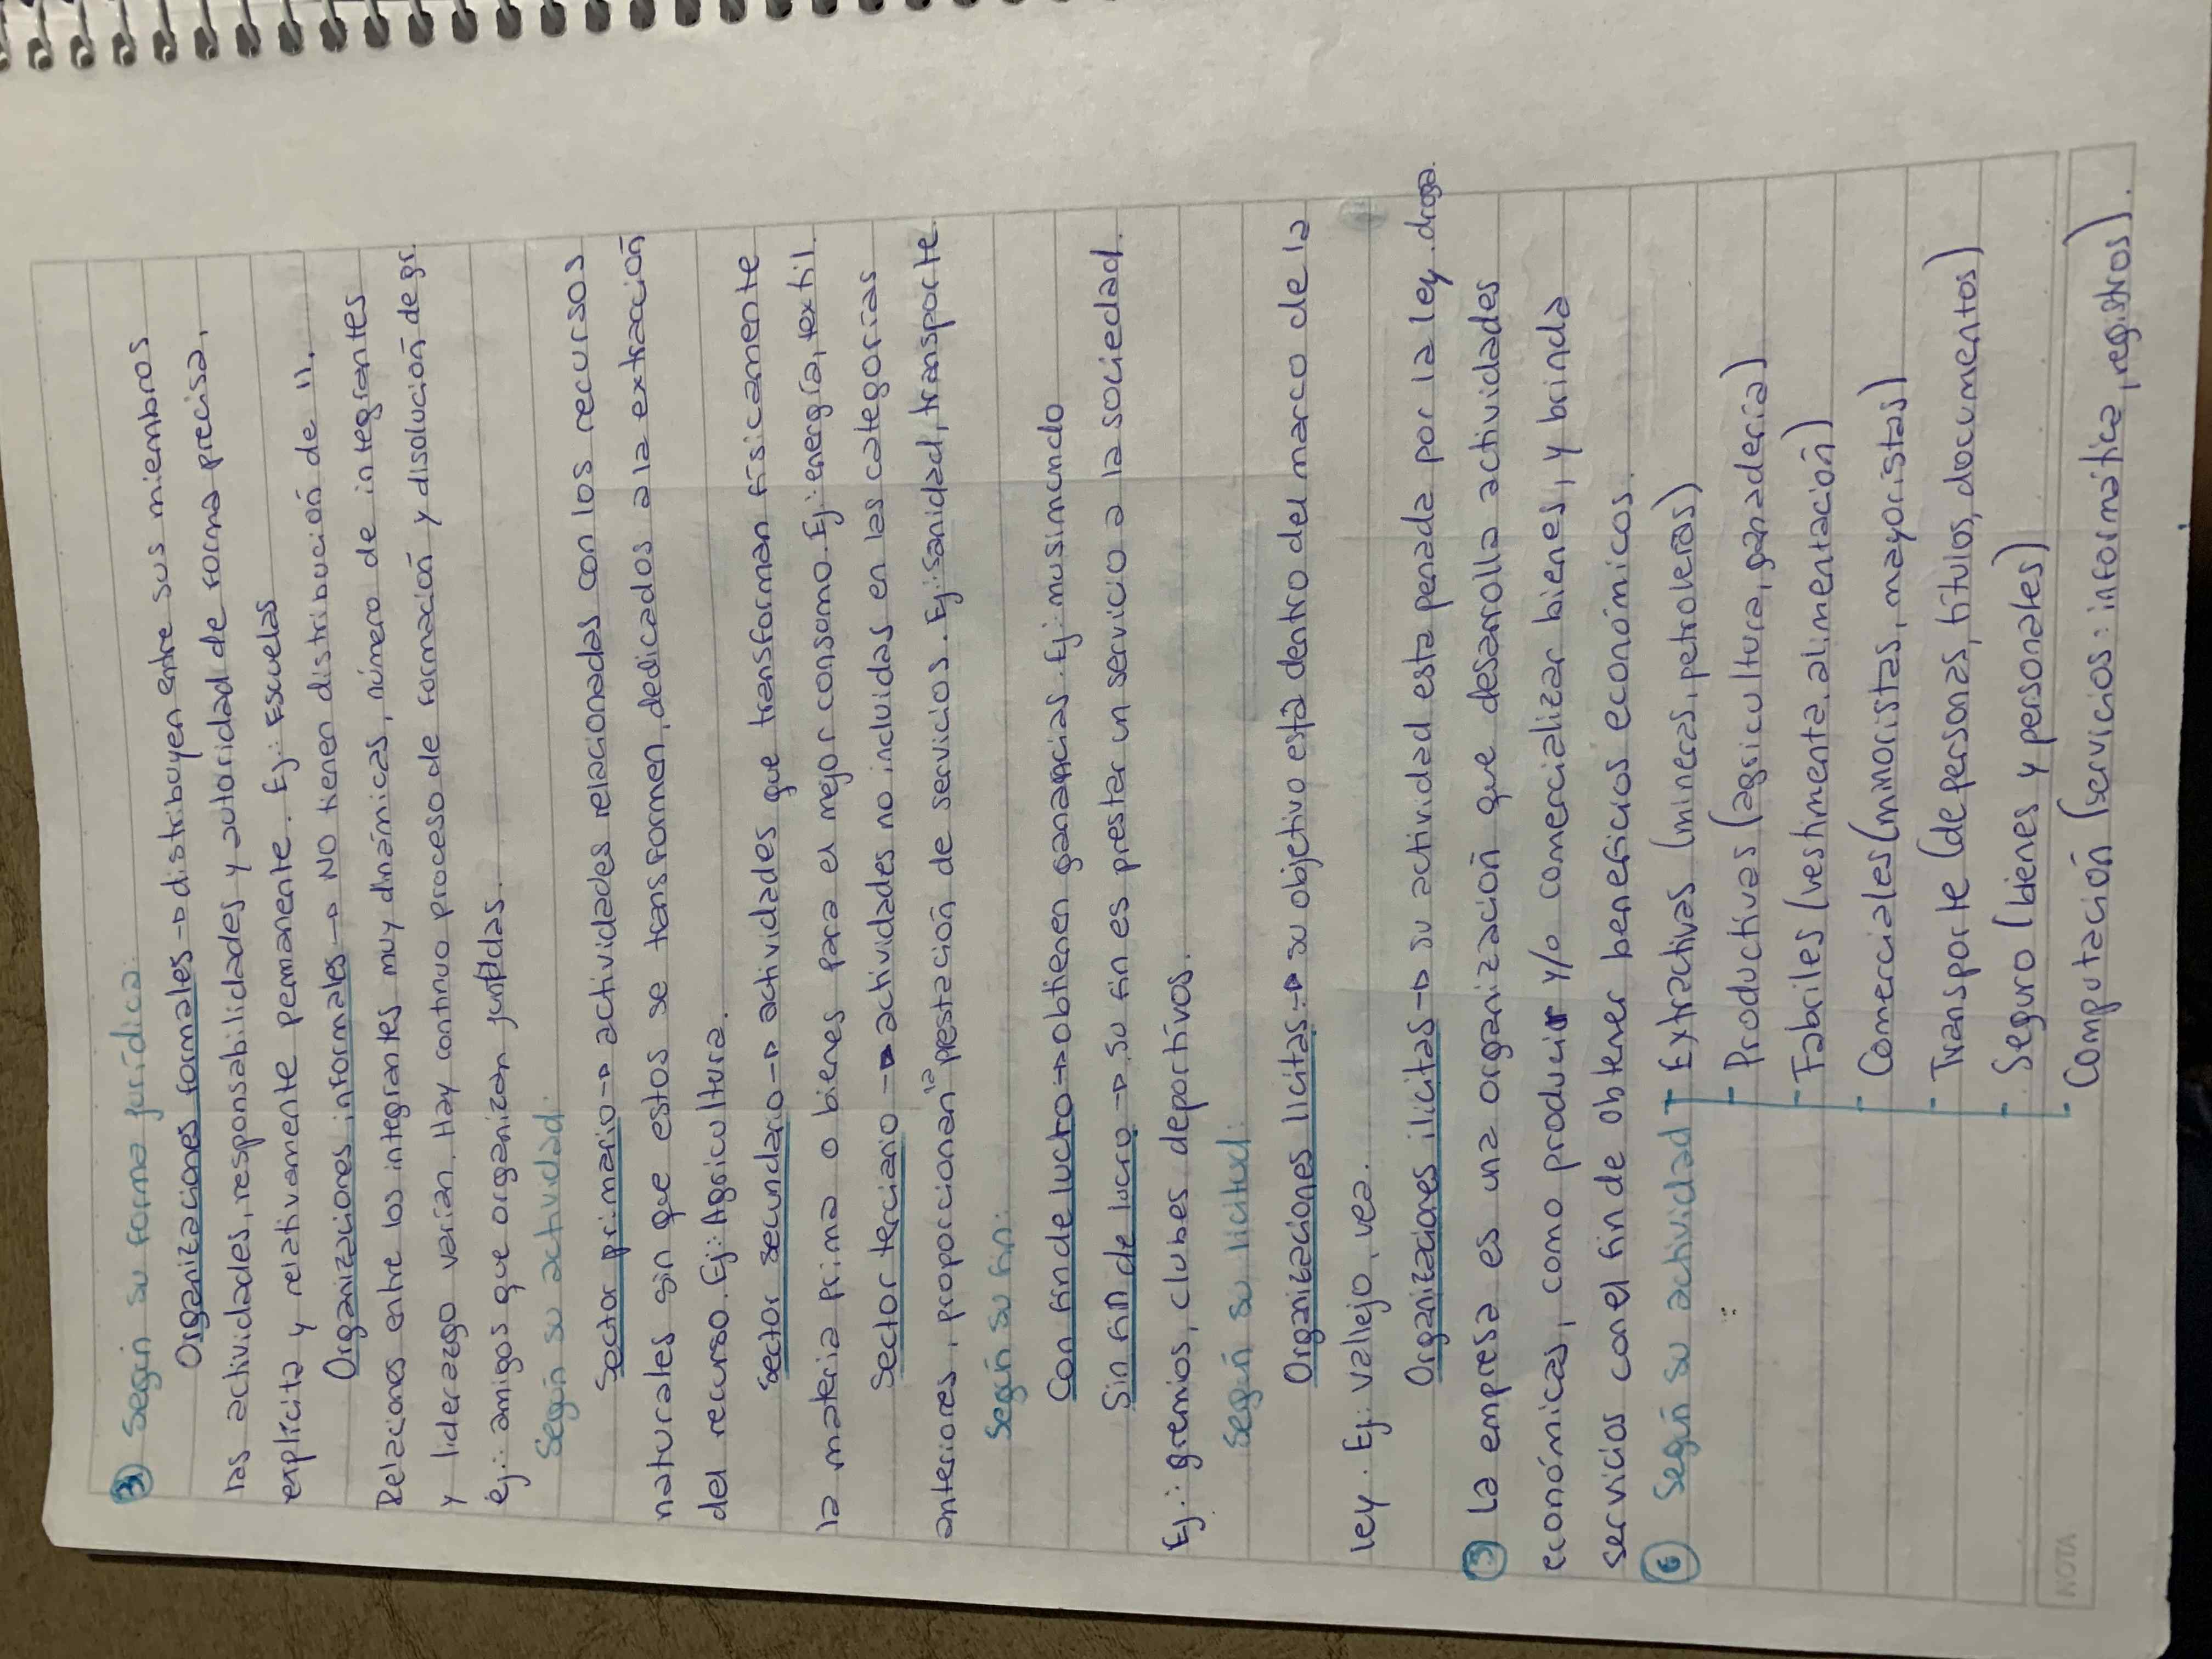 3) Según su forma jurídica:
Organizaciones formales → distribuyen entre sus miembros
las actividades, responsabilidades y autoridad de forma precisa,
explícita y relativamente permanente. Ej: Escuelas
Organizaciones informales → NO tienen distribución de 11.
Relaciones entre los integrantes muy dinámicas, número de integrantes
y liderazgo varían. Hay continuo proceso de formación y disolución de gr.
ej: amigos que organizan juntadas.
Según su actividad:
Sector primario → actividades relacionadas con los recursos
naturales sin que estos se tansformen, dedicados a la extracción
del recurso. Ej: Agricultura.
Sector secundario → actividades que transforman físicamente
la materia prima o bienes para el mejor consumo. Ej: energía, textil.
Sector terciario → actividades no incluidas en las categorías
anteriores, proporcionan la prestación de servicios. Ej: sanidad, transporte.
Según su fin:
Con fin de lucro → obtienen ganancias. Ej: musimundo
Sin fin de lucro → su fin es prestar un servicio a la sociedad.
Ej: gremios, clubes deportivos.
Según su licitud:
Organizaciones lícitas → su objetivo está dentro del marco de la
ley. Ej: vallejo, vea.
Organizaciones ilícitas → su actividad esta penada por la ley. droga.
5) La empresa es una organización que desarrolla actividades
económicas, como producir y/o comercializar bienes, y brinda
servicios con el fin de obtener beneficios económicos.
6) Según su actividad - Extractivas (mineras, petroleras)
- Productivas (agricultura, ganadería)
- Fabriles (vestimenta, alimentación)
- Comerciales (minoristas, mayoristas)
- Transporte (de personas, títulos, documentos)
- Seguro (bienes y personales)
- Computación (servicios: informática, registros).
NOTA